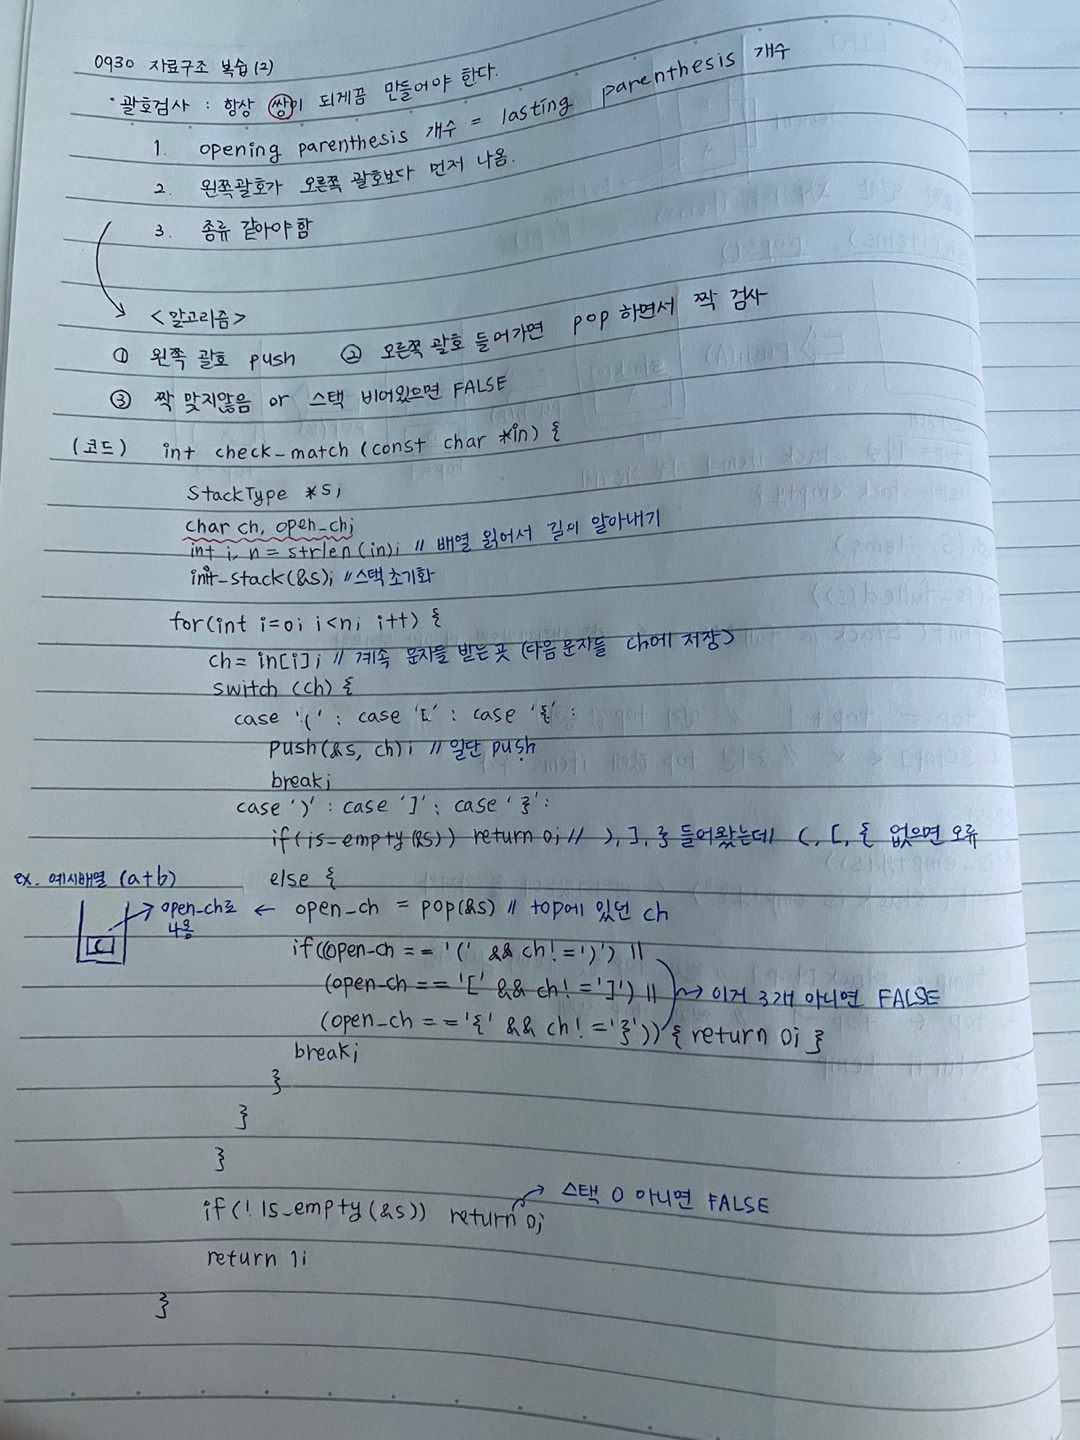 0930 자료구조 복습(2)
· 괄호검사 : 항상 쌍이 되게끔 만들어야 한다.
1. opening parenthesis 개수 = lasting parenthesis 개수
2. 왼쪽괄호가 오른쪽 괄호보다 먼저 나옴.
3. 종류 같아야 함
<알고리즘>
① 왼쪽 괄호 push ② 오른쪽 괄호 들어가면 pop 하면서 짝 검사
③ 짝 맞지않음 or 스택 비어있으면 FALSE
(코드) int check_match (const char *in) {
StackType *s;
char ch, open_ch;
int i, n = strlen(in); // 배열 읽어서 길이 알아내기
init_stack(&s); // 스택 초기화
for(int i=0; i<n; i++) {
ch = in[i]; // 계속 문자들 받는 곳 (다음 문자들 ch에 저장)
switch (ch) {
case '(' : case '[' : case '{' :
push(&s, ch); // 일단 push
break;
case ')' : case ']' : case '}' :
if(is_empty(&s)) return 0; // ), ], } 들어왔는데 (, [, { 없으면 오류
ex. 예시배열 (a+b) else {
open_ch로 ← open_ch = pop(&s) // top에 있던 ch
나옴
(
if((open_ch == '(' && ch != ')') ||
(open_ch == '[' && ch != ']') || → 이거 3개 아니면 FALSE
(open_ch == '{' && ch != '}')) { return 0; }
break;
}
}
}
if(! is_empty(&s)) return 0; 스택 0 아니면 FALSE
return 1;
}